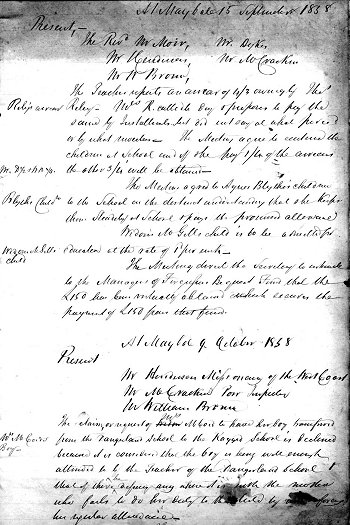 At Maybole 15 September 1858
Present,
The Revd Mr Moir, Mr Dykes
Mr Henderson, Mr McCracken
Mr W Brown,
The Teacher reports an arrear of 4/3 owing by Thos
Riley - Mrs R. called to day & proposes to pay the
same by Instalments but did not say at what period
or by what number. The Meeting agree to continue the
children at School and if she pay 1/ of the arrears
the other 3/ will be
The Meeting agreed to Agnes Blyth's children
Blyth's Childn
to the School on the distinct understanding that she keeps
them steadily at School & pays the promised allowance
Widow McGill's child is to be admitted for
Widow McGill's
child
education at the rate of 1 per week
The Meeting direct the Secretary to intimate
to the Managers of Ferguson Bequest Fund that the
£150 has been virtually obtained which secures the
payment of £150 from that fund.
At Maybole 9 October 1858
Present
Mr Henderson Missionary of the West Coast
Mr McCracken Poor Inspector
Mr William Brown
The Claim or request of to have her boy transferred
from the School to the Ragged School is declined
because it is considered that the boy is being well enough
attended to by the Teacher of the School &
that if there any it is with the mother
who fails to do her duty to the child by
her regular allowance.